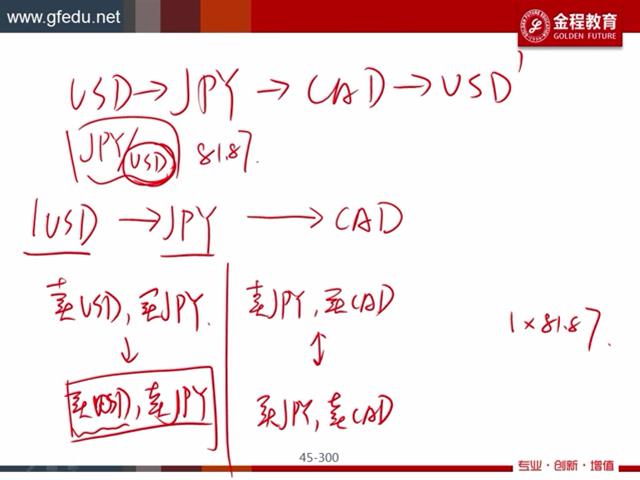 www.gfedu.net
金程教育
GOLDEN FUTURE
USD→JPY→CAD→USD'
JPY/USD 81.87.
1USD→JPY→CAD
卖USD,买JPY.
卖JPY,买CAD
1×81.87.
↓
↕
买USD,卖JPY
买JPY,卖CAD
45-300
专业·创新·增值